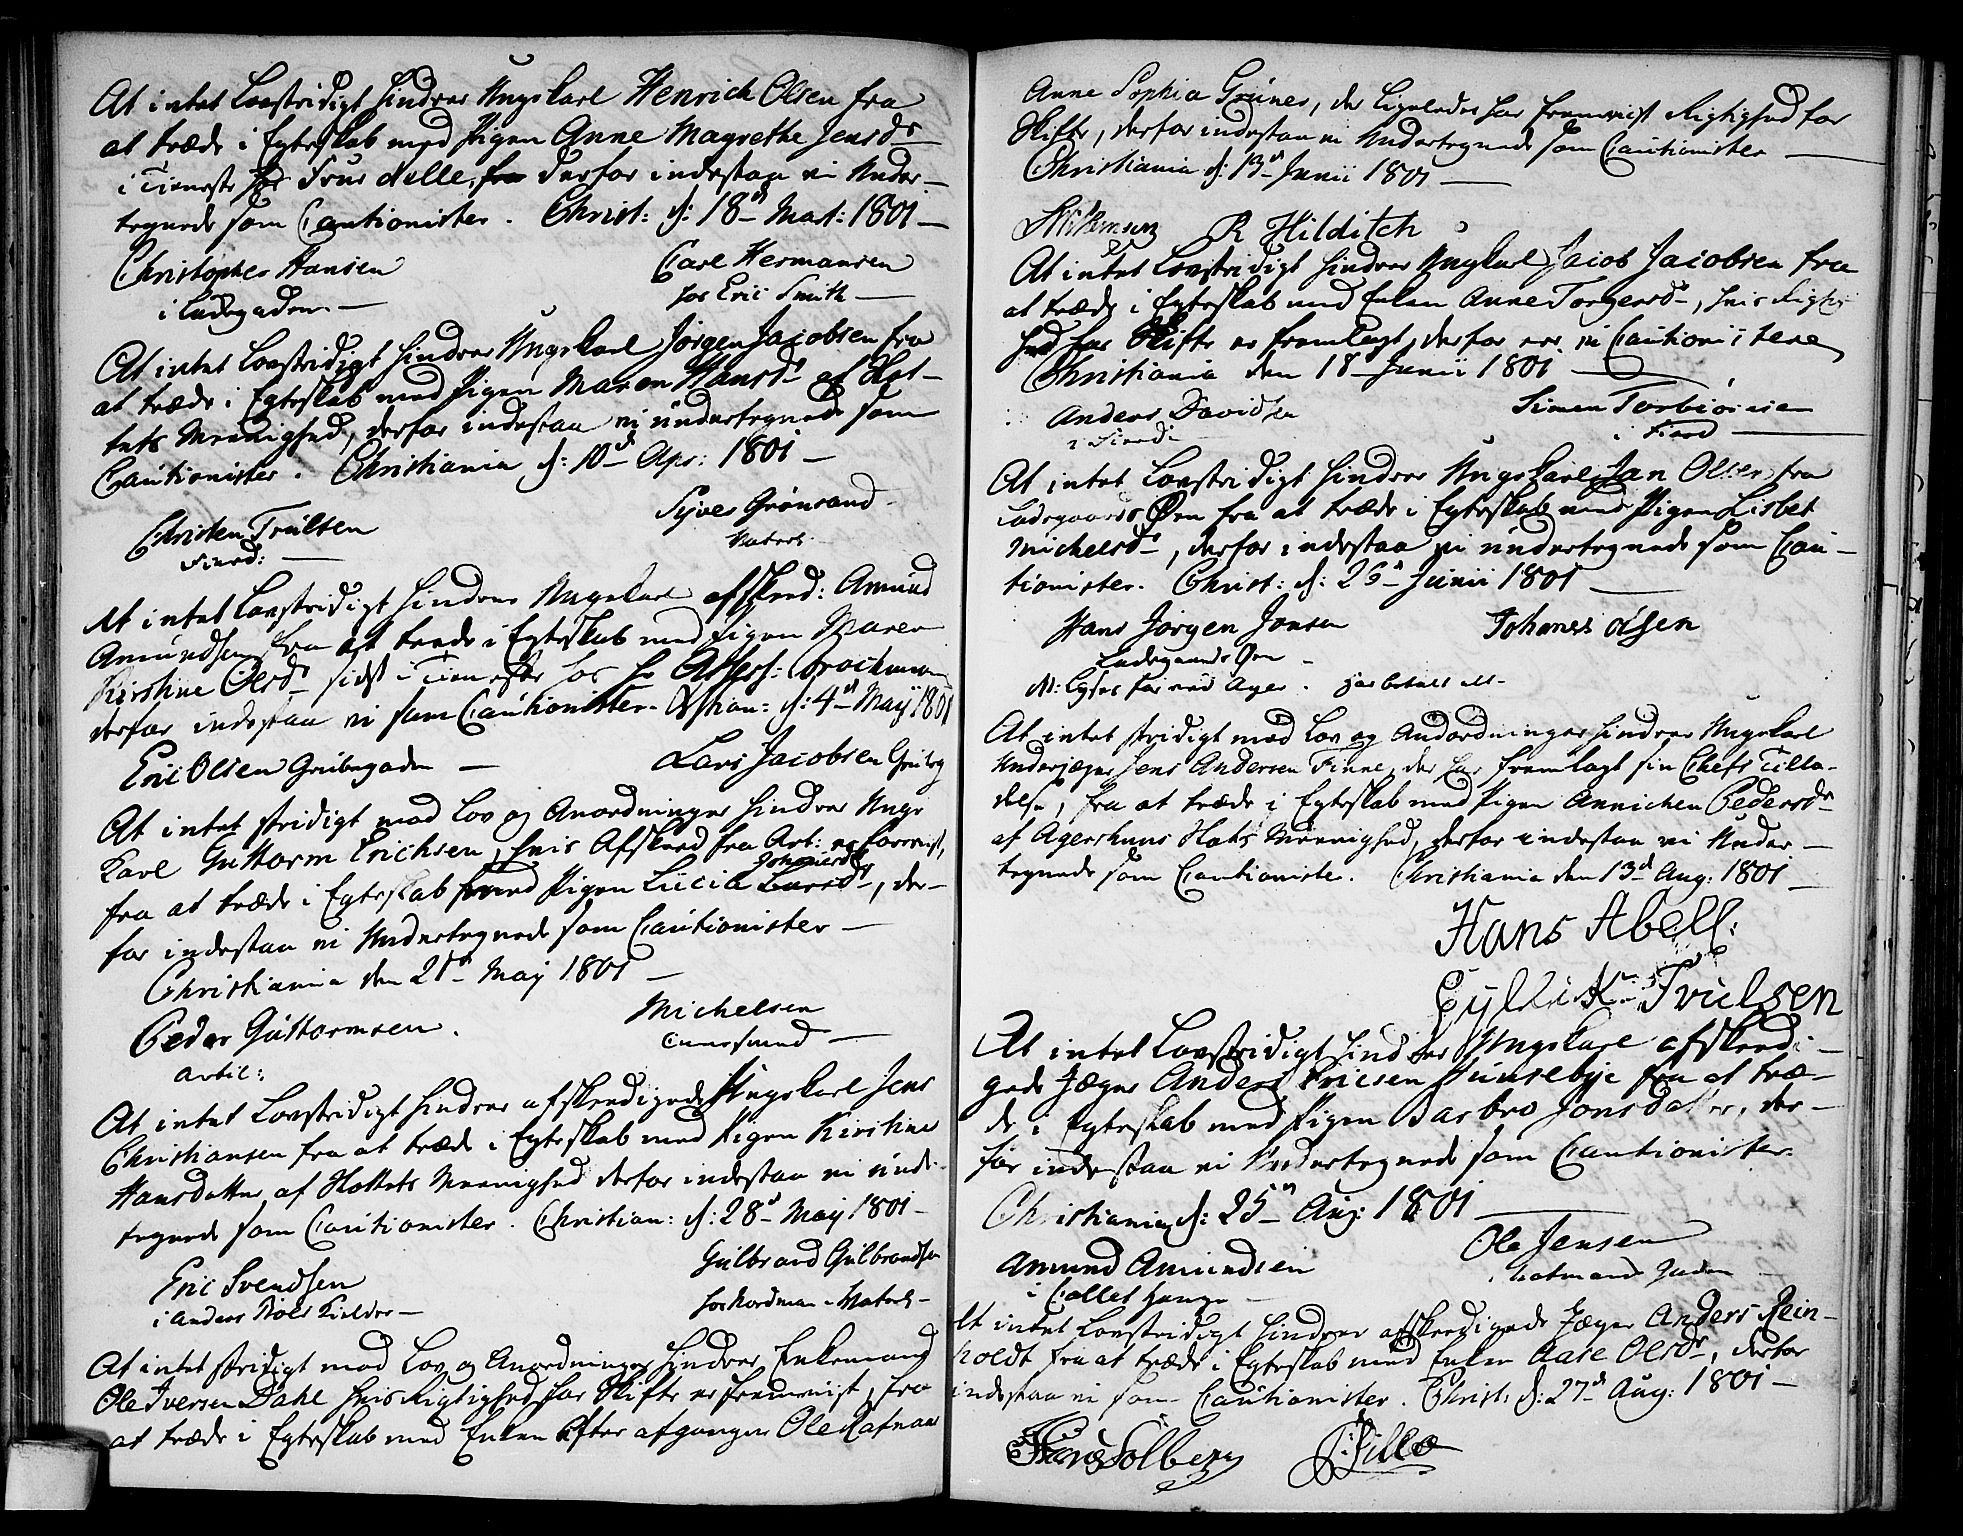 At intet Lovstridigt hindrer Ungkarl Henrich Olsen fra
at træde i Egteskab med Pigen Anne Magrethe Jensdr
i Tieneste hos Frue Nelle, derfor indestaa vi Under-
tegnede som Cautionister. Christ: d: 18d Mart: 1801
Christopher Hansen Carl Hermansen
i Ladegaden hos Eric Smith
At intet Lovstridigt hindrer Ungkarl Jörgen Jacobsen fra
at træde i Egteskab med Pigen Maren Hansdr af Slot-
tets Menighed, derfor indestaa vi undertegnede som
Cautionister. Christiania d: 10d Apr: 1801
Christen Trulsen Syver Grönsand
Fierd: Matros
At intet Lovstridigt hindrer Ungkarl afskeed: Amund
Amundsen fra at træde i Egteskab med Pigen Maren
Kirstine Olsdr sidst i Tieneste hos Hr Assess: Brochman
derfor indestaa vi som Cautionister. Christian: d: 4d Maij 1801
Eric Olsen Grübegaden Lars Jacobsen Grübeg
At intet stridigt mod Lov og Anordninger hindrer Ung-
karl Guttorm Erichsen, hvis Afskeed fra Art: er foreviist,
Johannesdr
fra at træde i Egteskab med Pigen Lücia Larsdr, der-
for indestaa vi Undertegnede som Cautionister
Christiania den 21d Maij 1801
Peder Guttormsen Michelsen
Artil:
At intet Lovstridigt hindrer afskeedigede Ungkarl Jens
Christiansen fra at træde i Egteskab med Pigen Kirstine
Hansdatter af Slottets Menighed derfor indestaa vi unde
tegnede som Cautionister. Christian: d: 28d Maij 1801
Eric Svendsen Gulbrand Gulbrandsen
i Anders Kielder hos Nordman Matros
At intet stridigt mod Lov og Anordninger hindrer Enkemand
Ole Iversen Dahl hvis Rigtighed for Skifte er fremviist, fra
at træde i Egteskab med Enken efter afgangen Ole Rafnaa
Anne Sophia Grüner, der ligeledes har fremviist Rigtighed for
Skifte, derfor indestaa vi Undertegnede som Cautionister
Christiania d: 13d Junii 1801
R Hilditch
At intet Lovstridigt hindrer Ungkarl Jacob Jacobsen fra
at træde i Egteskab med Enken Anne Torgersdr, hvis Rigtig
hed for Skifte er fremlagt, derfor ere vi Cautionistere
Christiania den 18 Junii 1801
Anders Davidsen Simen Torbiörnsen
i Fierd i Fierd
At intet Lovstridigt hindrer Ungkarl Jan Olsen fra
Ladegaards Öen fra at træde i Egteskab med Pigen Lisbet
Michelsdr, derfor indestaa vi undertegnede som Cau-
tionister. Christ: d: 26d Junii 1801
Hans Jörgen Jonsen Johanes olsen
Ladegaards Öen
At intet stridigt mod Lov og Andordninger hindrer Ungkarl
Underjæger Jens Andersen Finne, der har fremlagt sin Chefs Tilla-
delse, fra at træde i Egteskab med Pigen Annichen Pedersdr
af Agershuus Slots Menighed, derfor indestaa vi Under-
tegnede som Cautioniste. Christiania den 13d Aug: 1801
Hans Abell:
Trulsen
At intet Lovstridigt hindrer Ungkarl afskeedi-
gede Jæger Anders Ericsen Hunsebye fra at træ-
de i Egteskab med Pigen Barbro Jonsdatter, der-
for indestaa vi Undertegnede som Cautionister.
Christiania d: 25d Aug: 1801
Amund Amundsen Ole Jensen
i Collet Hauge Gaden
At intet Lovstridigt hindrer afskeedigede Jæger Anders Rein-
holdt fra at træde i Egteskab med Enken Aase Olsdr, derfor
indestaa vi som Cautionister. Christ: d: 27d Aug: 1801
Hans Solberg